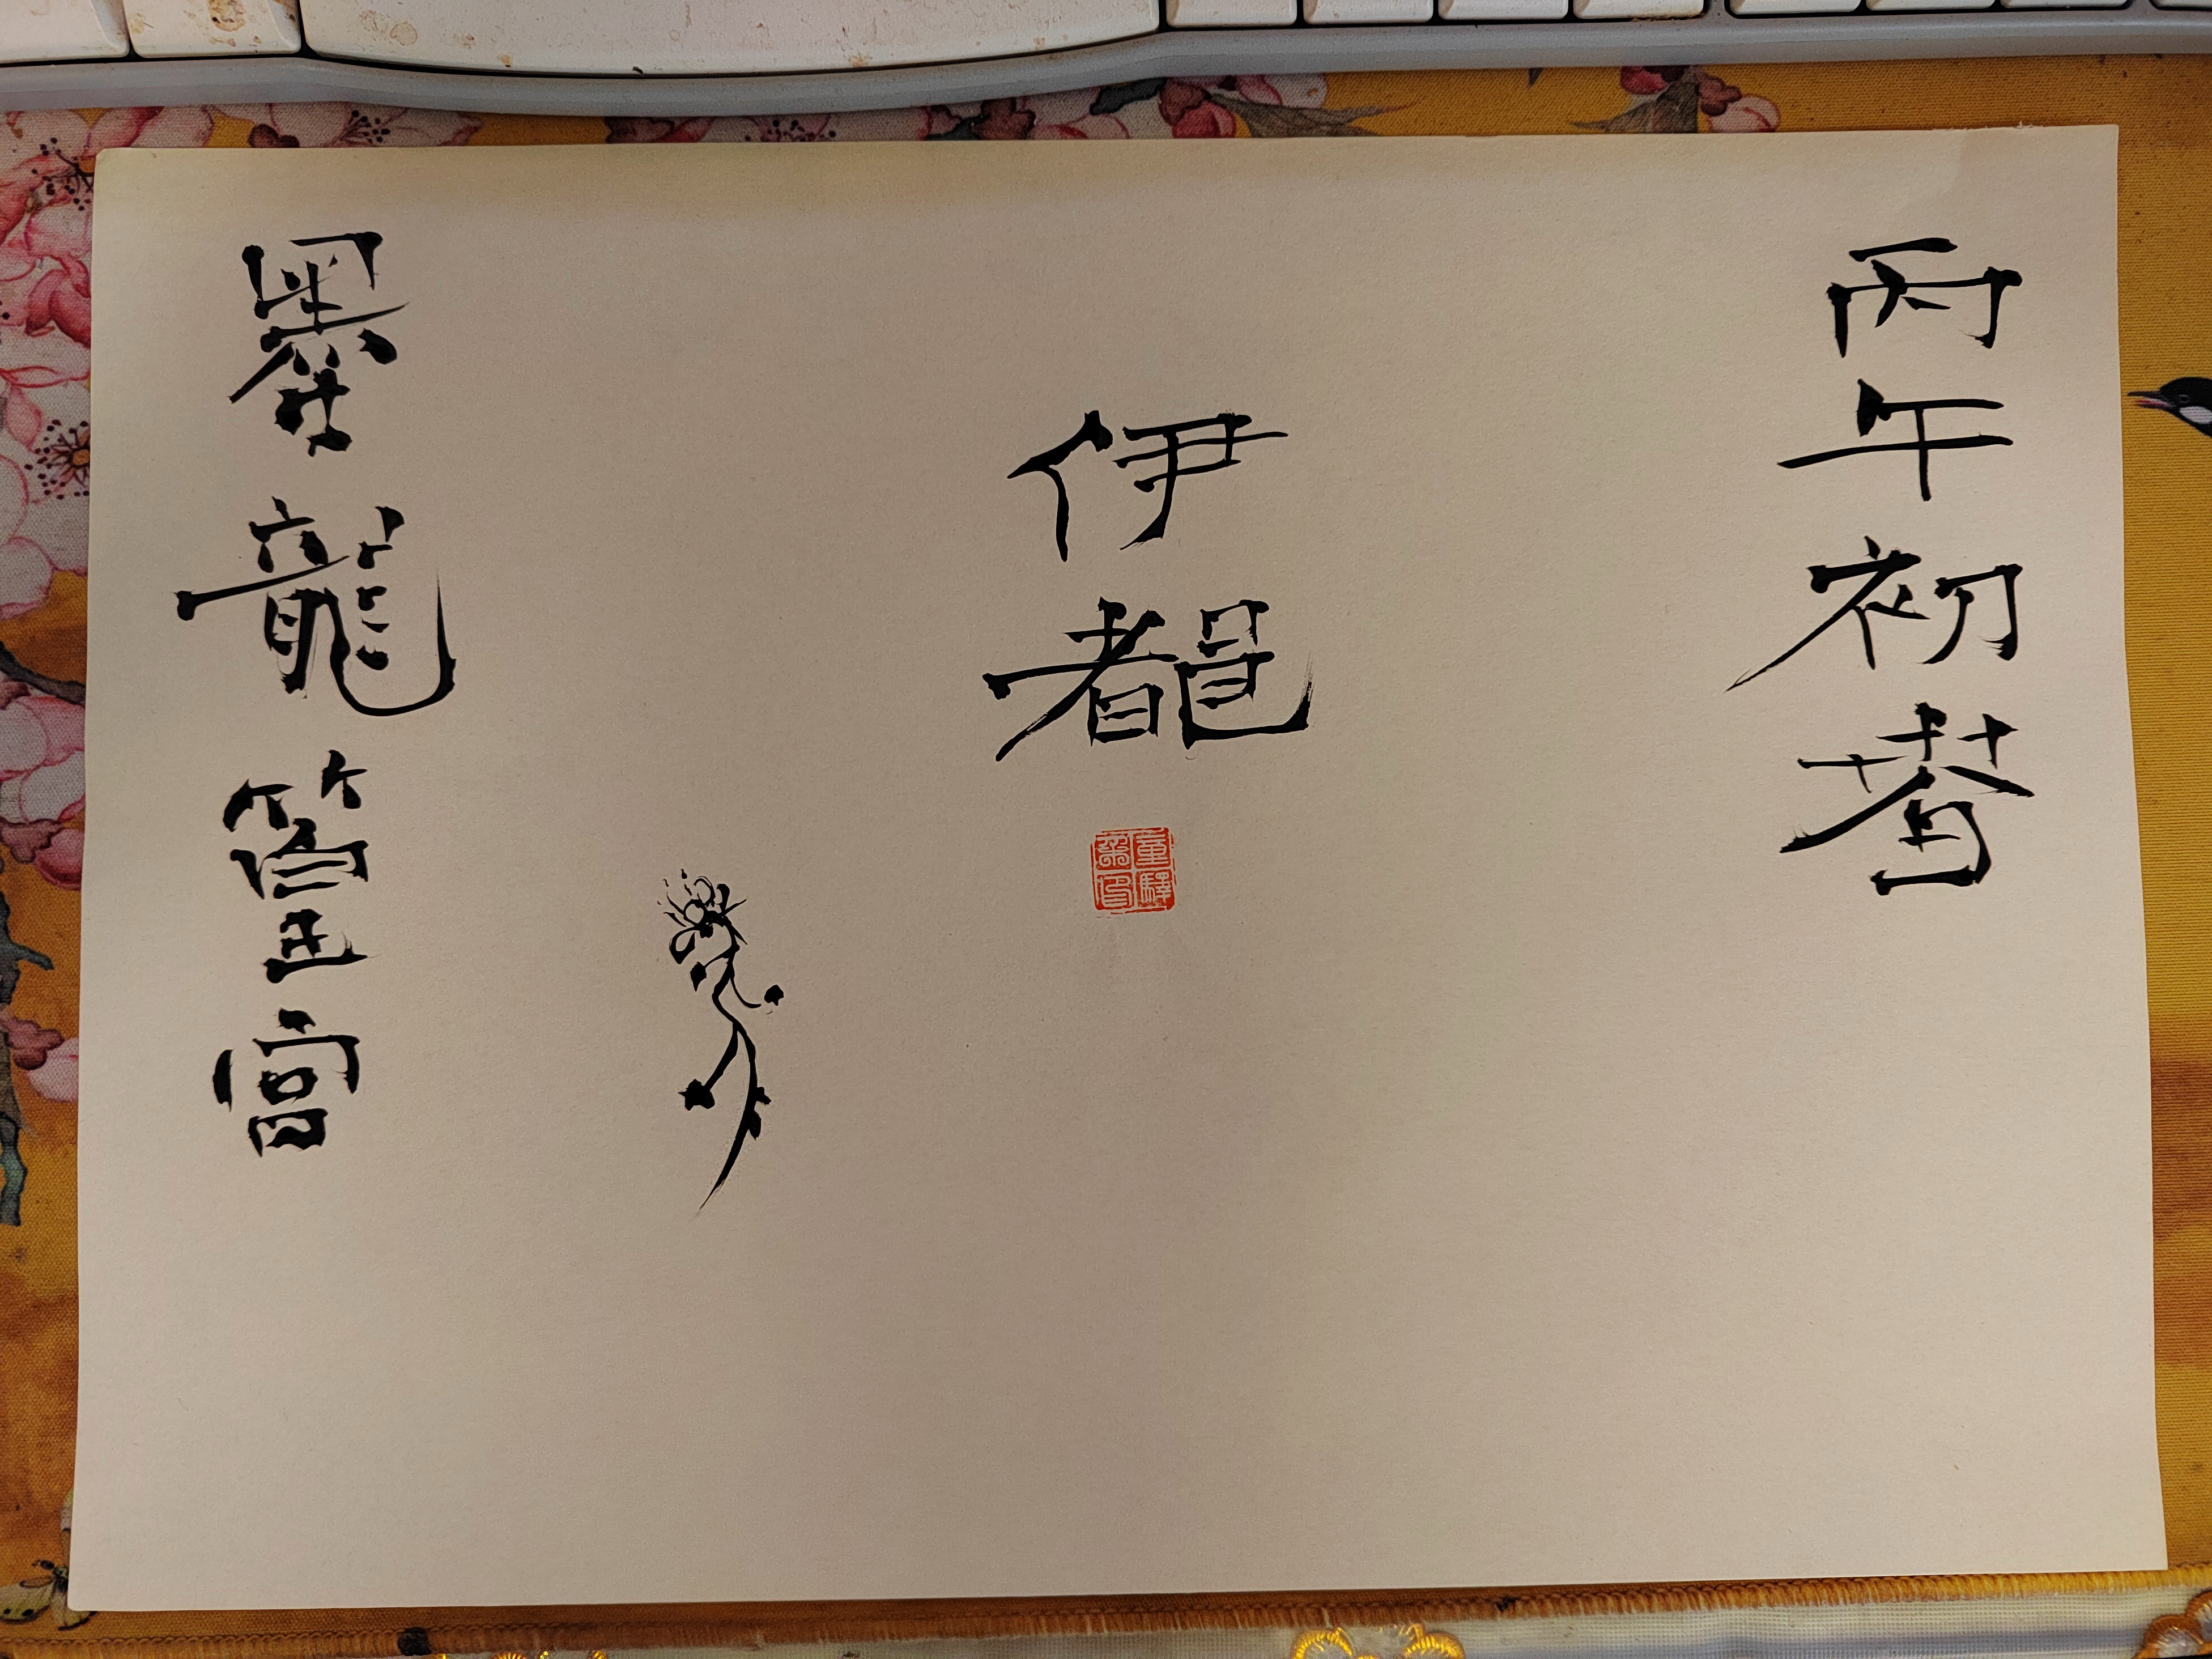 丙午初春
伊都
墨龍篁宮